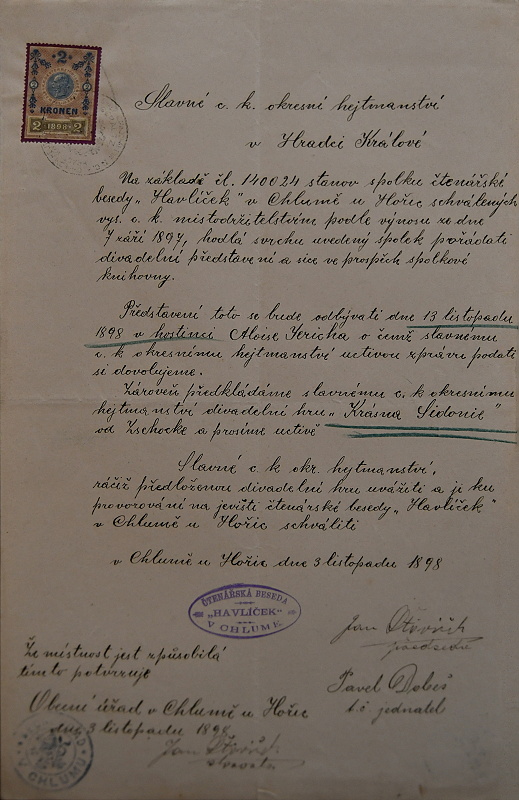 2
KRONEN
2 1898 2
Slavné c. k. okresní hejtmanství
v Hradci Králové
Na základě čl. 140024 stanov spolku čtenářské
besedy „Havlíček" v Chlumě u Hořic schválených
vys. c. k. místodržitelstvím podle výnosu ze dne
7 září 1897, hodlá svrchu uvedený spolek pořádati
divadelní představení a sice ve prospěch spolkové
knihovny.
Představení toto se bude odbývati dne 13 listopadu
1898 v hostinci Aloise Jericha o čemž slavnému
c. k okresnímu hejtmanství uctivou zprávu podati
si dovolujeme.
Zároveň předkládáme slavnému c. k okresnímu
hejtmanství divadelní hru „Krásna Sidonie"
od Zschocke a prosíme uctivě
Slavné c k okr. hejtmanství,
ráčiž předloženou divadelní hru uvážiti a ji ku
provozování na jevišti čtenářské besedy „Havlíček"
v Chlumě u Hořic schváliti
v Chlumě u Hořic dne 3 listopadu 1898
ČTENÁŘSKÁ BESEDA
"HAVLÍČEK"
V CHLUMĚ
Jan
předseda
Že místnost jest způsobilá
tímto potvrzuje
Pavel Dobeš
t. č. jednatel
Obecní úřad v Chlumě u Hořic
dne 3 listopadu 1898
Jan
starosta
CHLUMU